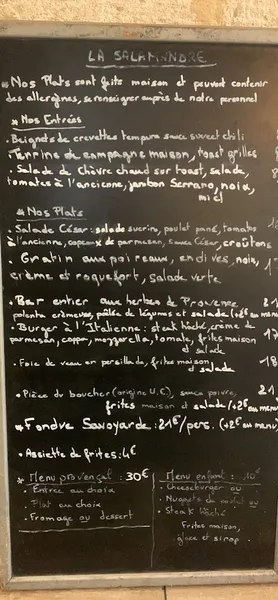 LA SALAMANDRE
* Nos Plats sont faits maison et peuvent contenir
des allergènes, se renseigner auprès de notre personnel
* Nos Entrées
• Beignets de crevettes tempura sauce sweet chili
• Terrine de campagne maison, toast grillés
• Salade de chèvre chaud sur toast, salade,
tomates à l'ancienne, jambon Serrano, noix,
miel
* Nos Plats
• Salade César: salade sucrine, poulet pané, tomates
à l'ancienne, copeaux de parmesan, sauce César, croûtons
• Gratin aux poireaux, endives, noix,
crème et roquefort, salade verte
• Bar entier aux herbes de Provence
polenta crémeuse, poêlée de légumes et salade (+2€ au menu)
• Burger à l'Italienne: steak hâché, crème de 17
parmesan, coppa, mozzarella, tomate, frites maison
et salade
• Foie de veau en persillade, frites maison 18
et salade
• Pièce du boucher (origine U.C), sauce poivre, 21
frites maison et salade (+2€ au menu)
* Fondue Savoyarde: 21€/pers. (+2€ au menu)
• Assiette de frites: 4€
* Menu provençal: 30€
• Entrée au choix
• Plat au choix
• Fromage ou dessert
Menu enfant: 10€
• Cheeseburger ou
• Nuggets de poulet ou
• Steak hâché
Frites maison,
glace et sirop.